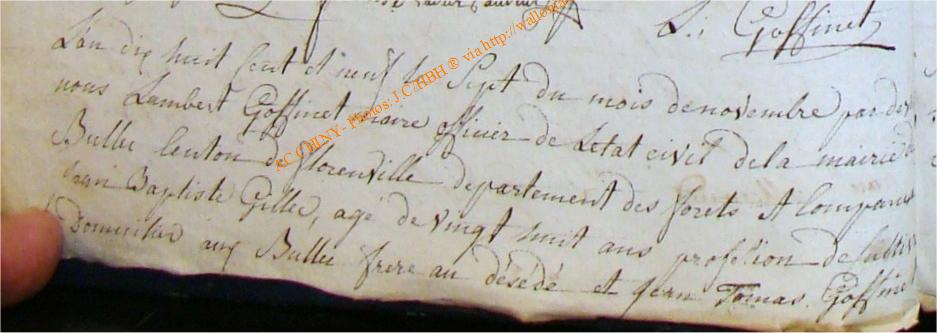 L. Goffinet
L'an dix huit cent et neuf le Sept du mois de novembre par dev
nous Lambert Goffinet maire officier de Letat civil dela mairie de
Bulles Canton de florenville departement des forets A Comparus
Jean Baptiste Gilles, agé de vingt huit ans profesion de labour
Domicilier aux Bulles frere au désedé et Jean Tomas Goffinet
AC CHINY - Photos: J.C/HBH ® via http://wallonia